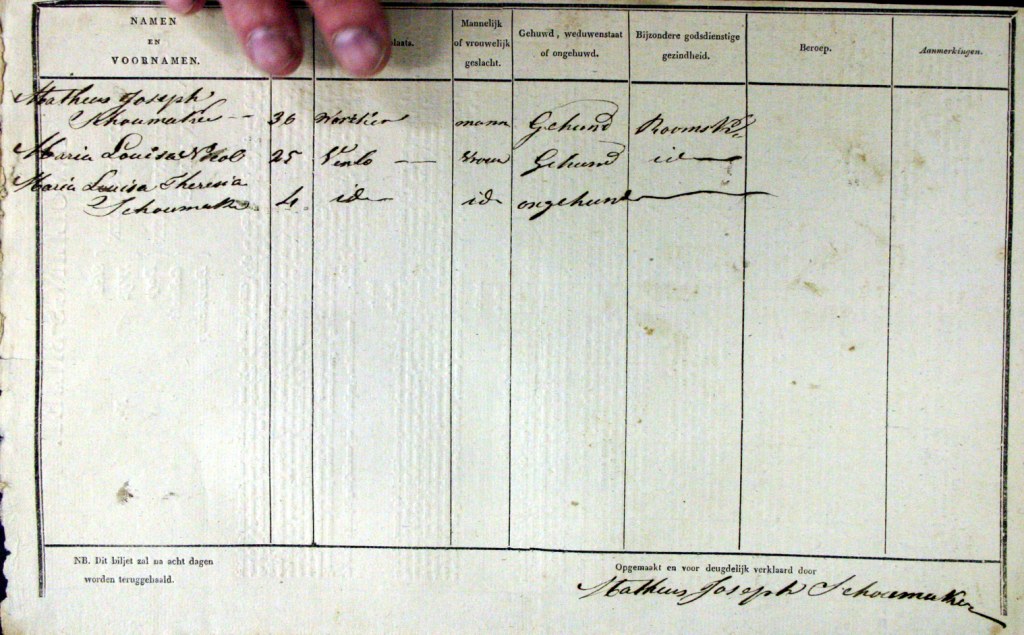 NAMEN
EN
VOORNAMEN.
plaats.
Mannelijk
of vrouwelijk
geslacht.
Gehuwd, weduwenstaat
of ongehuwd.
Bijzondere godsdienstige
gezindheid.
Beroep.
Aanmerkingen.
Matheus Joseph
Schoumaker — 36 mann Gehuwd Rooms
Maria Louisa 25 Venlo — Vrou Gehuwd id
Maria Louisa Theresia
Schoumaker 4 id id ongehuwd
NB. Dit biljet zal na acht dagen
worden teruggehaald.
Opgemaakt en voor deugdelijk verklaard door
Matheus Joseph Schoumaker